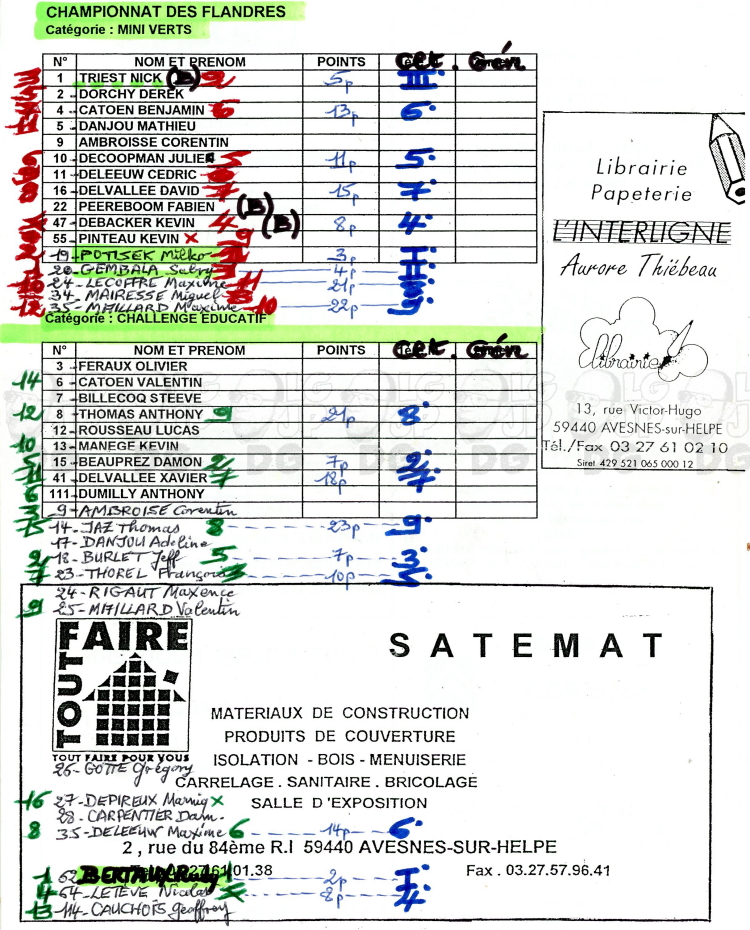 CHAMPIONNAT DES FLANDRES
Catégorie : MINI VERTS
N° NOM ET PRENOM POINTS Clt. Gén
1 TRIEST NICK (B) 2 5p III
2 DORCHY DEREK
4 CATOEN BENJAMIN 6 13p 6
5 DANJOU MATHIEU
9 AMBROISSE CORENTIN
10 DECOOPMAN JULIE 5 11p 5
11 DELEEUW CEDRIC
16 DELVALLEE DAVID 7 15p 7
22 PEEREBOOM FABIEN (B)
47 DEBACKER KEVIN 4 (B) 8p 4
55 PINTEAU KEVIN x 9
19 - POTISEK Milko 3p I
20 - GEMBALA Sabry 4p II
24 - LECOFFRE Maxime 11 21p
34 - MAIRESSE Miguel
35 - MAILLARD Maxime 10 22p
Catégorie : CHALLENGE EDUCATIF
N° NOM ET PRENOM POINTS Clt. Gén
3 FERAUX OLIVIER
14 6 CATOEN VALENTIN
7 BILLECOQ STEEVE
12 8 THOMAS ANTHONY 9 21p 8
12 ROUSSEAU LUCAS
10 13 MANEGE KEVIN
15 BEAUPREZ DAMON 2 7p 2
11 41 DELVALLEE XAVIER 7 18p 7
6 111 DUMILLY ANTHONY
9 - AMBROISE Corentin
15 14 - JAZ Thomas 8 23p 9
17 - DANJOU Adeline
2 18 - BURLET Jeff 5 7p 3
7 23 - THOREL François 3 10p 5
24 - RIGAUT Maxence
9 25 - MAILLARD Valentin
TOUT FAIRE
TOUT FAIRE POUR VOUS
SATEMAT
MATERIAUX DE CONSTRUCTION
PRODUITS DE COUVERTURE
ISOLATION - BOIS - MENUISERIE
CARRELAGE . SANITAIRE . BRICOLAGE
SALLE D'EXPOSITION
26 - GOTTE Grégory
16 27 - DEPIREUX Mannig x
28 - CARPENTIER Dam.
8 35 - DELEEUW Maxime 6 14p 6
2 , rue du 84ème R.I 59440 AVESNES-SUR-HELPE
Fax . 03.27.57.96.41
1 62 BERTAUX Rudy 1 2p I
4 64 - LETEVE Nicolas 8p 4
13 114 - CAUCHOIS Geoffrey
Librairie
Papeterie
L'INTERLIGNE
Aurore Thiébeau
Librairie
13, rue Victor-Hugo
59440 AVESNES-sur-HELPE
Tél./Fax 03 27 61 02 10
Siret 429 521 065 000 12